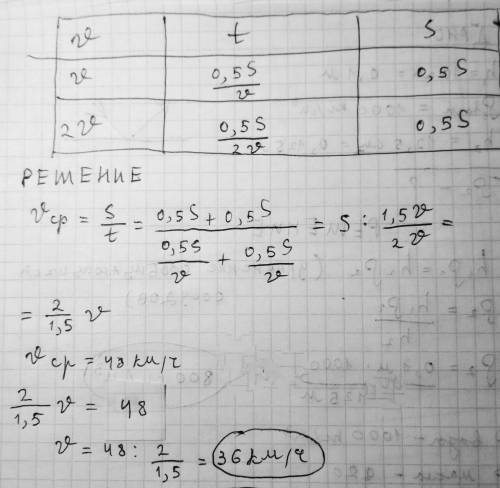 v t S
v 0,5S/v 0,5S
2v 0,5S/2v 0,5S
РЕШЕНИЕ
vср = S/t = (0,5S + 0,5S)/(0,5S/v + 0,5S/v) = S : 1,5v/2v =
= 2/1,5 v
vср = 48 км/ч
2/1,5 v = 48
v = 48 : 2/1,5 = 36 км/ч